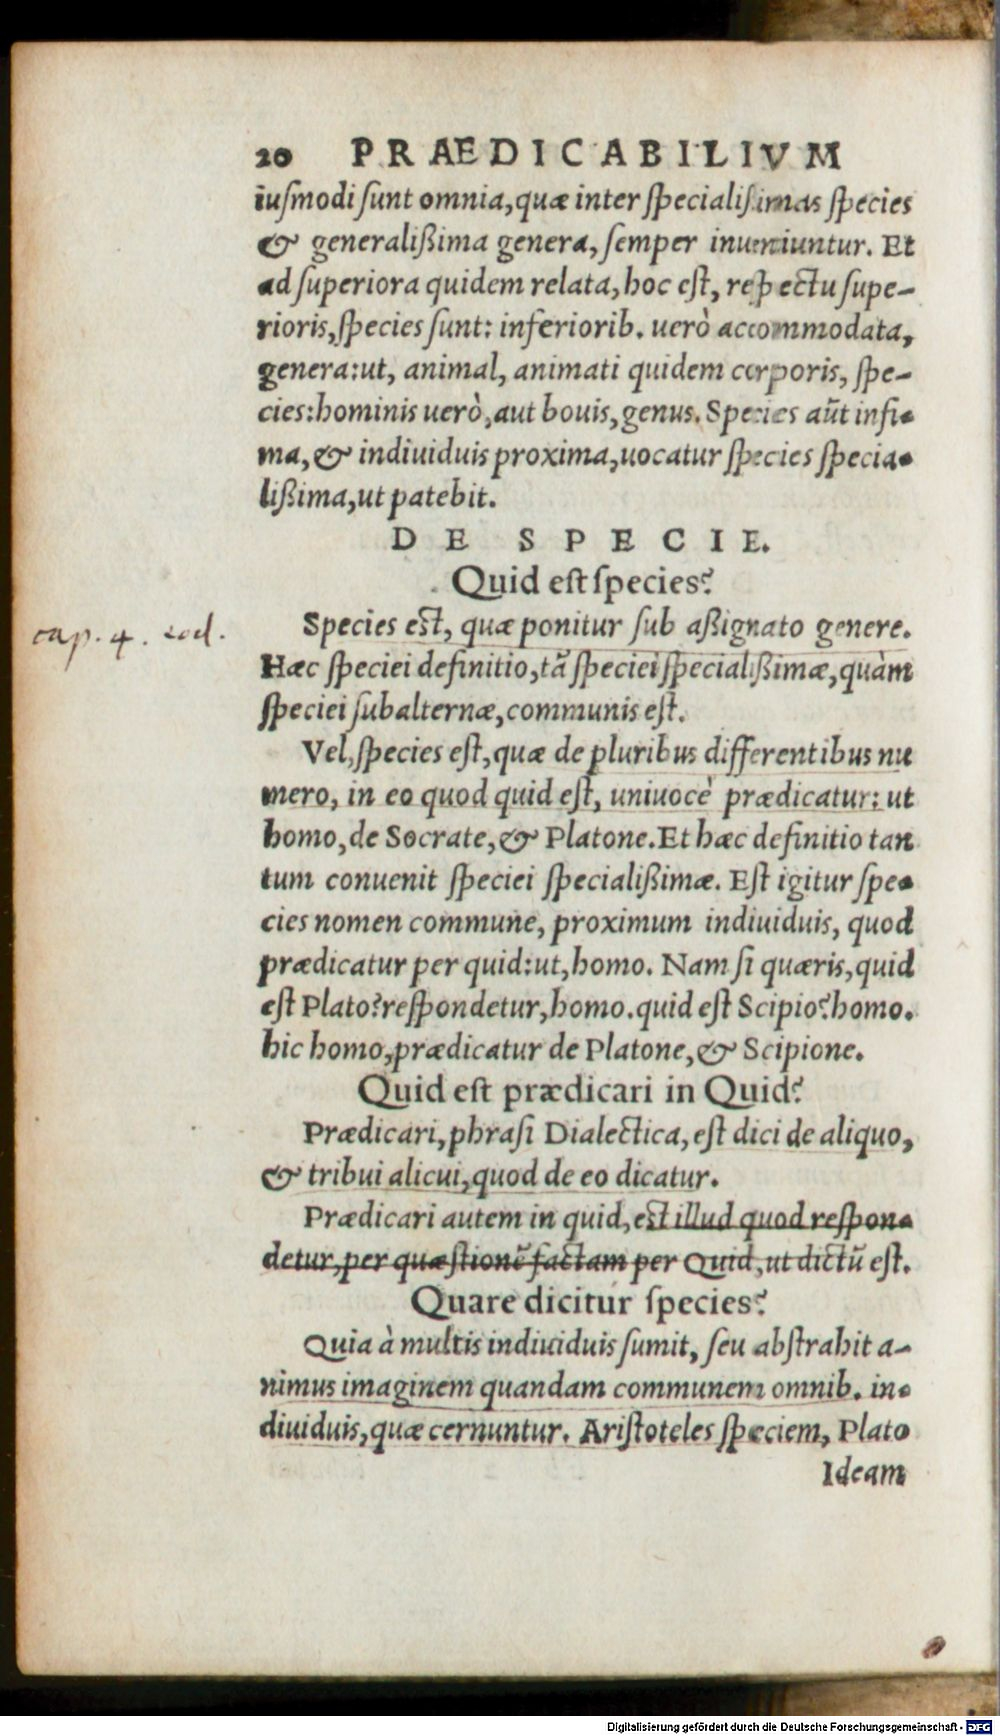 20 PRÆDICABILIVM
iuſmodi ſunt omnia, quæ inter ſpecialiſsimas ſpecies
& generalißima genera, ſemper inueniuntur. Et
ad ſuperiora quidem relata, hoc eſt, reſpectu ſupe-
rioris, ſpecies ſunt: inferiorib. uerò accommodata,
genera: ut, animal, animati quidem corporis, ſpe-
cies: hominis uerò, aut bouis, genus. Species aūt infi-
ma, & indiuiduis proxima, uocatur ſpecies ſpecia-
lißima, ut patebit.
DE SPECIE.
Quid eſt ſpecies?
cap. 4. eod.
Species eſt, quæ ponitur ſub aßignato genere.
Hæc ſpeciei definitio, tā ſpeciei ſpecialißimæ, quàm
ſpeciei ſubalternæ, communis eſt.
Vel, ſpecies eſt, quæ de pluribus differentibus nu
mero, in eo quod quid eſt, uniuocè prædicatur: ut
homo, de Socrate, & Platone. Et hæc definitio tan
tum conuenit ſpeciei ſpecialißimæ. Eſt igitur ſpe-
cies nomen commune, proximum indiuiduis, quod
prædicatur per quid: ut, homo. Nam ſi quæris, quid
eſt Plato? reſpondetur, homo. quid eſt Scipio? homo.
hic homo, prædicatur de Platone, & Scipione.
Quid eſt prædicari in Quid?
Prædicari, phraſi Dialectica, eſt dici de aliquo,
& tribui alicui, quod de eo dicatur.
Prædicari autem in quid, eſt illud quod reſpon-
detur, per quæſtionē factam per Quid, ut dictū eſt.
Quare dicitur ſpecies?
Quia à multis indiuiduis ſumit, ſeu abſtrahit a-
nimus imaginem quandam communem omnib. in-
diuiduis, quæ cernuntur. Ariſtoteles ſpeciem, Plato
Ideam
Digitalisierung gefördert durch die Deutsche Forschungsgemeinschaft - DFG